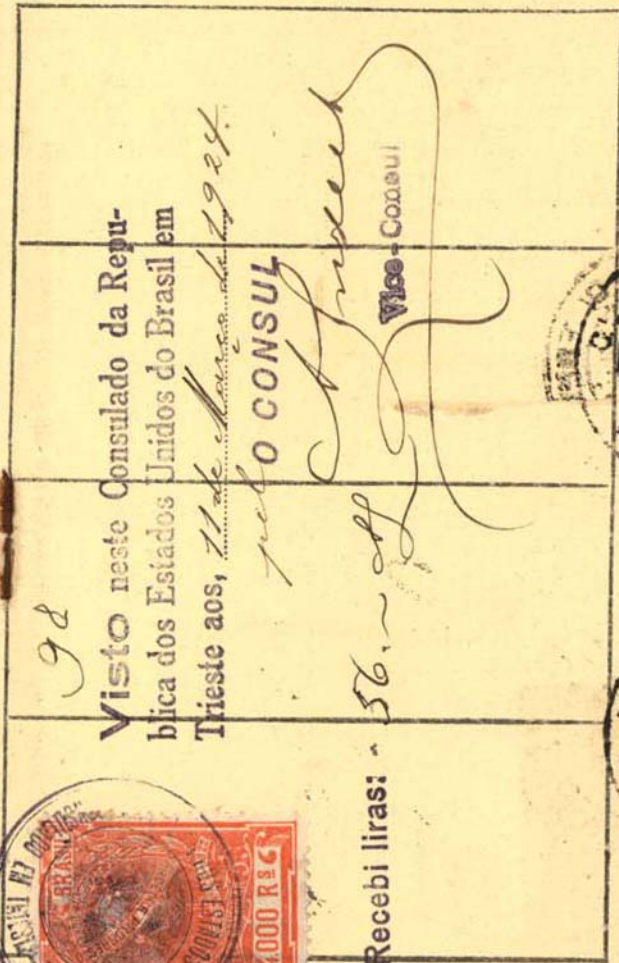 98
Visto neste Consulado da Repu-
blica dos Estados Unidos do Brasil em
Trieste aos, 11 de Março de 1924.
pel O CONSUL
Vice-Consul
Recebi liras: - 56.~
BRASIL
ESTADOS
.000 Rs